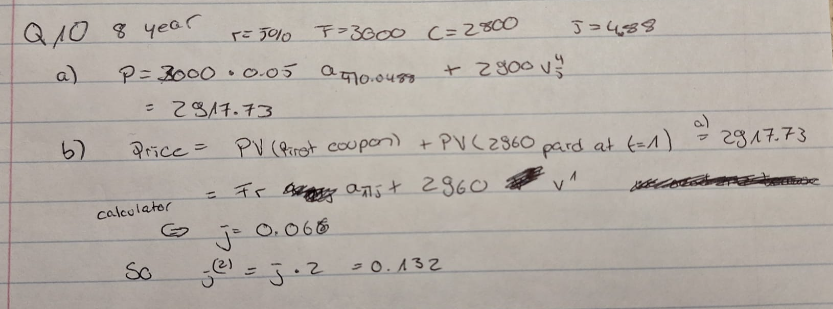 Q10 8 year r=5% F=3000 C=2800 J=4,88
a) P=3000 • 0.05 a4¬0.0488 + 2900 v⁴j
= 2917.73
b) Price = PV(first coupon) + PV(2960 paid at t=1) a)= 2917.73
= Fr a1¬j + 2960 v¹
calculator
⇔ j= 0.066
So j⁽²⁾ = j • 2 = 0.132